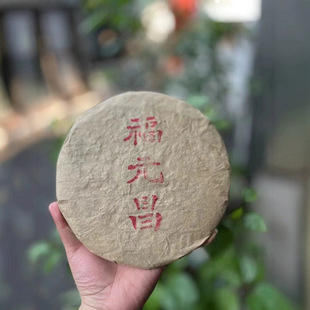 福
元
昌